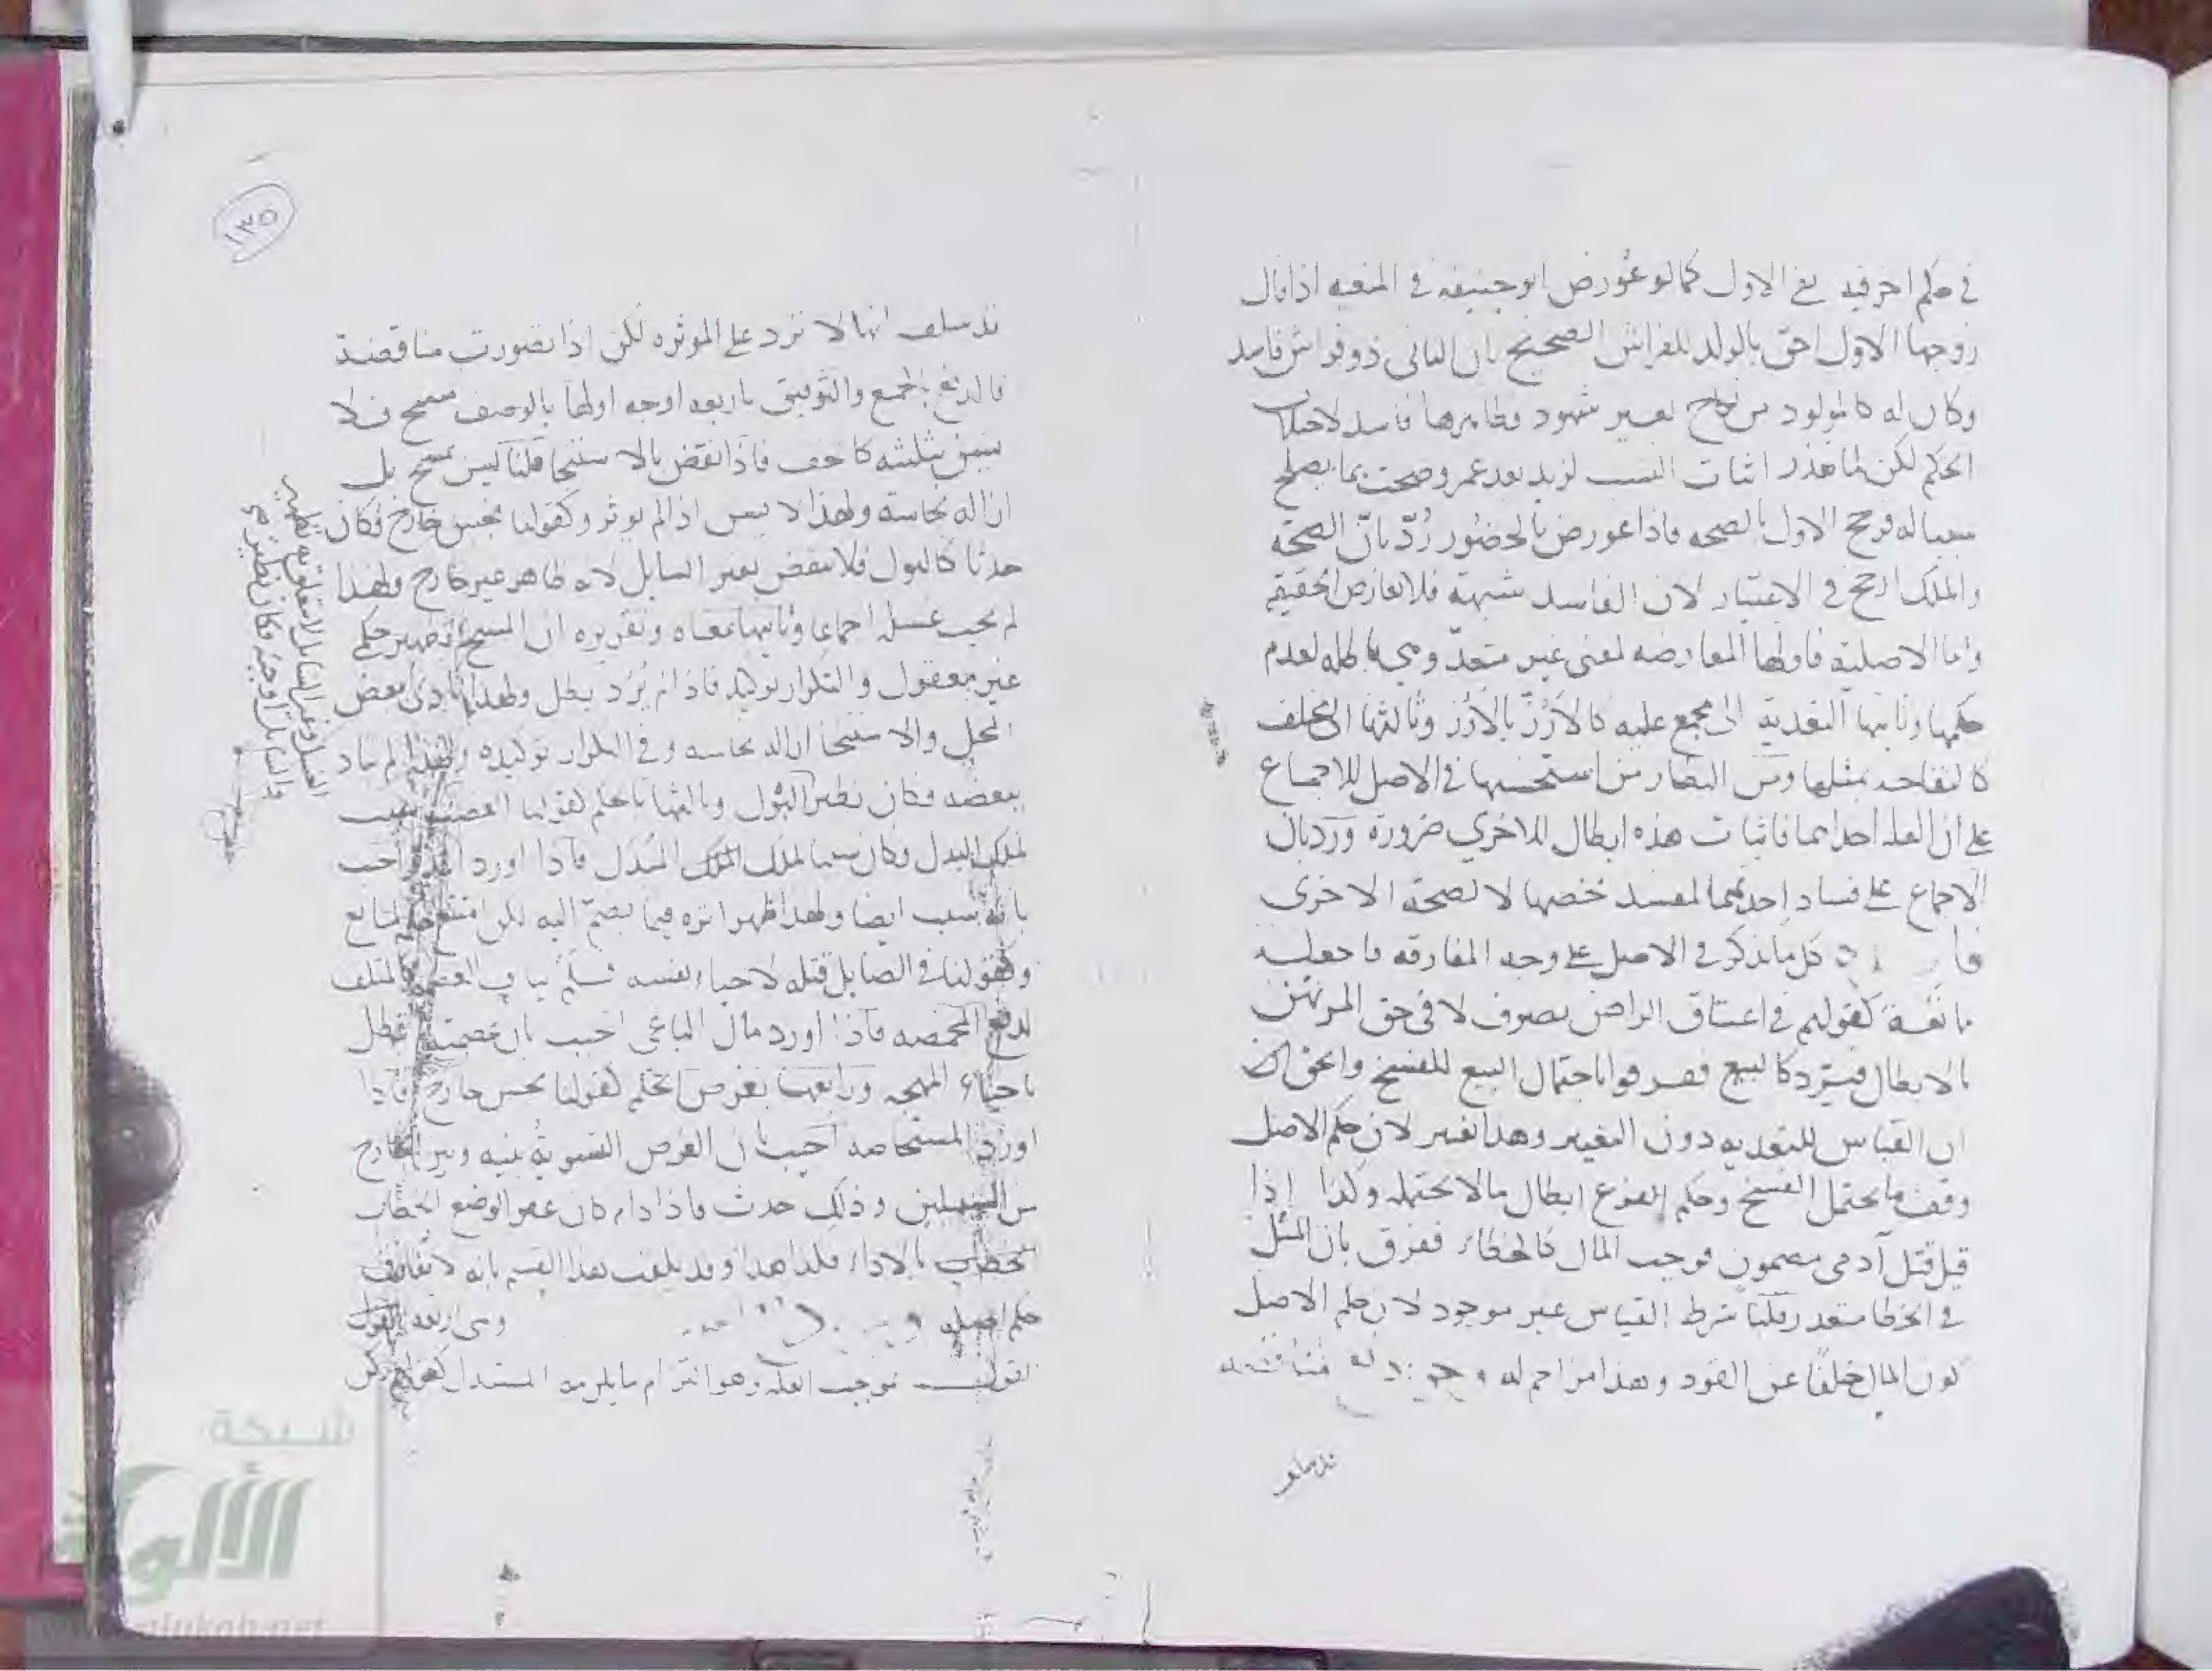 في حكم اخر فيه نفي الاول كما لو عُورض ابو حنيفه في المنعيه اذا قال
زوجها الاول احق بالولد للفراش الصحيح بان الثاني ذو فراش فاسد
وكان له كالمولود من نكاح بغير شهود فظاهرها فاسد لاختلاف
الحكم لكن لما تعذر اثبات النسب لزيد بعد عمرو صحت بما يصلح
سببا له فرجح الاول بالصحه فاذا عورض بالحضُور رُدّ بانّ الصحّة
والملك ارجح في الاعتبار لان الفاسد شبهة فلا تعارض الحقيقة
واما الاصلية فاولها المعارضه لمعنى غير متعدّ وهي باطله لعدم
حكمها وثانيها التعدية الى مجمع عليه كالأرُزّ بالأرُز وثالثها الى مختلف
كالتفاحه بمثلها ومن النظار من استحسنها في الاصل للاجماع
على ان العلة احداهما فاثبات هذه ابطال للاخرى ضرورة ورَدّ بان
الاجماع على فساد احديهما لمفسد خصها لا لصحة الاخرى
كل ما يذكر في الاصل على وجه المفارقه فاجعله
مانعة كقولهم في اعتاق الراهن تصرف لاقى حق المرتهن
بالابطال فيُرد كالبيع ففرقوا باحتمال البيع للفسخ والحق
ان القياس للتعدية دون التغيير وهذا تغيير لان حكم الاصل
وقف ما يحتمل الفسخ وحكم الفرع ابطال ما لا يحتمله وكذا اذا
قيل قتل آدمى مضمون فوجب المال كالخطاء ففرق بان المثل
في الخطا متعذر قلنا شرط القياس غير موجود لان حكم الاصل
كون المال خلفًا عن القود وهذا مزاحم له
قد سلف
١٣٥
قد سلف انها لا ترد على الموثره لكن اذا تصورت مناقضة
فالدفع بالجمع والتوفيق باربعه اوجه اولها بالوصف مسح فلا
يسن تثليثه كالخف فاذا نقض بالاستنجا قلنا ليس بمسح بل
ازاله نجاسة ولهذا لا يسن اذا لم يوثر وكقولنا نجس خارج فكان
حدثا كالبول فلا ينقض بغير السايل لانه ظاهر غير خارج ولهذا
لم يجب غسله اجماعا وثانيها بمعناه وتقريره ان المسح تطهير حكمي
غير معقول والتكرار توكيد فاذا لم يُرَد بطل ولهذا تأدى ببعض
المحل والاستنجا ازالة نجاسه وفي التكرار توكيده ولهذا لم يتاد
ببعضه فكان نظير البول وثالثها بالحكم كقولنا الغصب سبب
لملك البدل فكان سببا لملك المبدل فاذا اورد المدبر اجيب
بانه سبب ايضا ولهذا ظهر اثره فيما يضمّ اليه لكن امتنع حكمه لمانع
وكقولنا في الصايل قتله لاحياء نفسه فلم يناف العصمة كالمتلف
لدفع المخمصه فاذا اورد مال الباغي اجيب بان عصمته لم تبطل
باحياء المهجه ورابعها بغرض الحكم كقولنا نجس خارج فاذا
اورد المستحاضه اجيب بان الغرض التسويةُ بينه وبين الخارج
من السبيلين وذلك حدث فاذا دام كان عفوا لوضع الخطاب
الخطاب بالاداء فكذا هذا وقد يلقب هذا القسم بانه لا يفارق
حكم اصله وهي اربعة القول
القول بموجب العلة وهو التزام ما يلزمه المستدل كقولهم